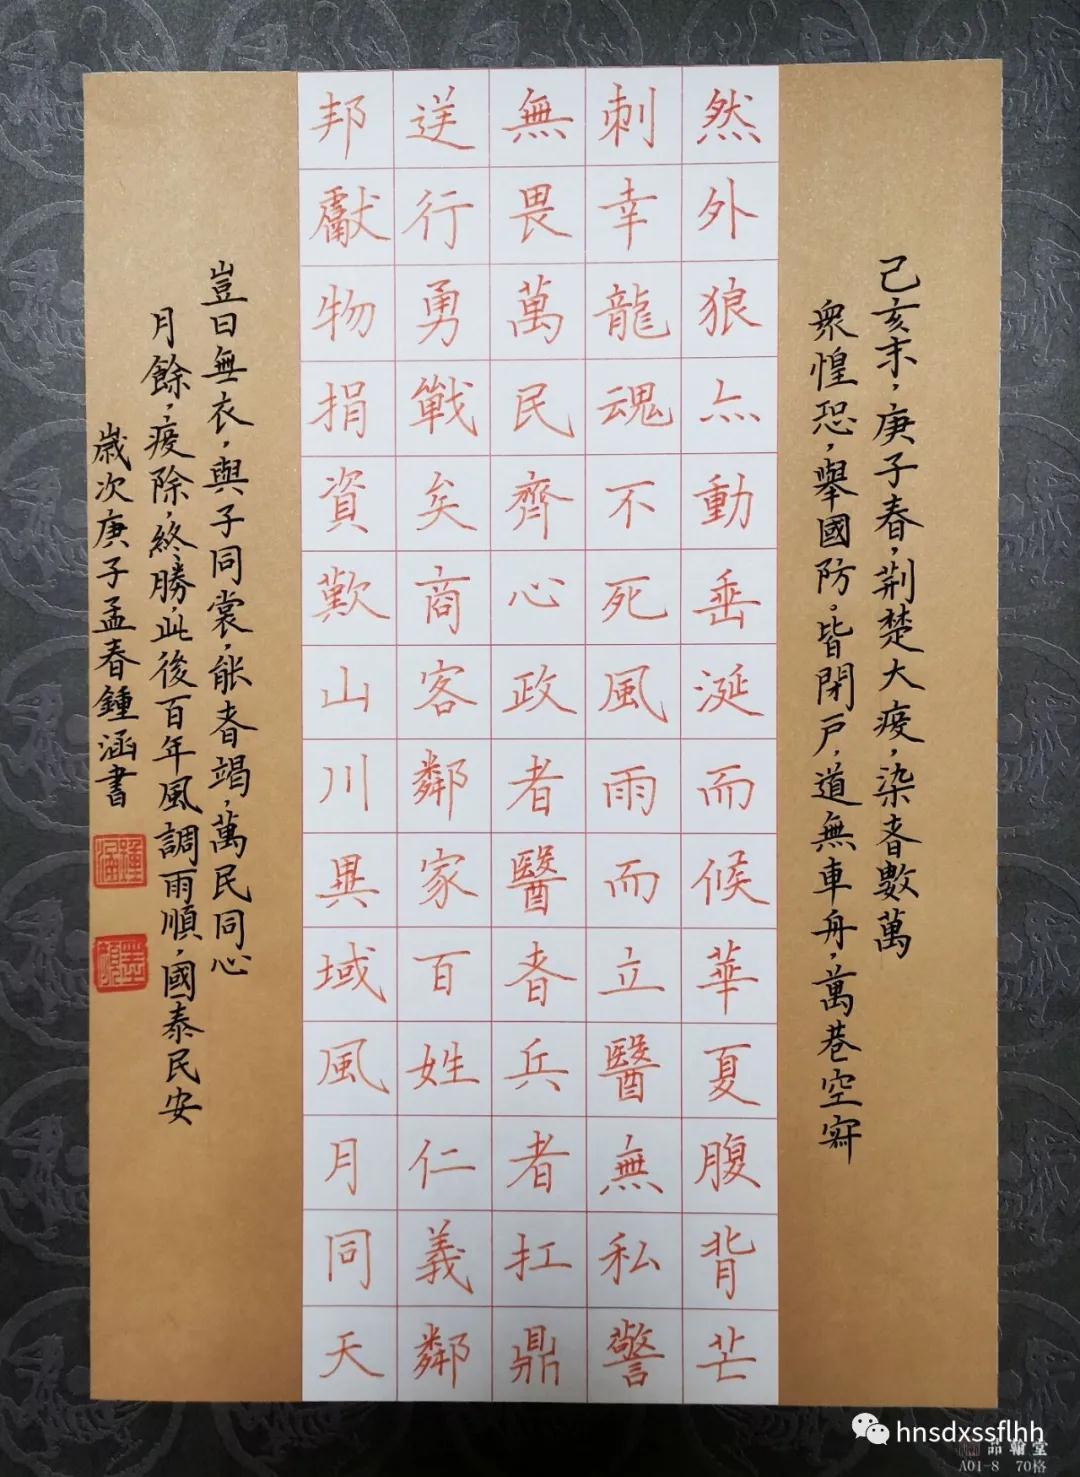 己亥末，庚子春，荆楚大疫，染者數萬
衆惶恐，舉國防。皆閉户，道無車舟，萬巷空寂
然外狼亦動垂涎而候華夏腹背芒
刺幸龍魂不死風雨而立醫無私警
無畏萬民齊心政者醫者兵者扛鼎
逆行勇戰矣商客鄰家百姓仁義鄰
邦獻物捐資歎山川異域風月同天
豈曰無衣，與子同裳，能者竭，萬民同心
月餘，疫除，終勝，此後百年風調雨順，國泰民安
歲次庚子孟春鍾涵書
鍾涵
hnsdxssflhh
品翰堂
A01-8 70格